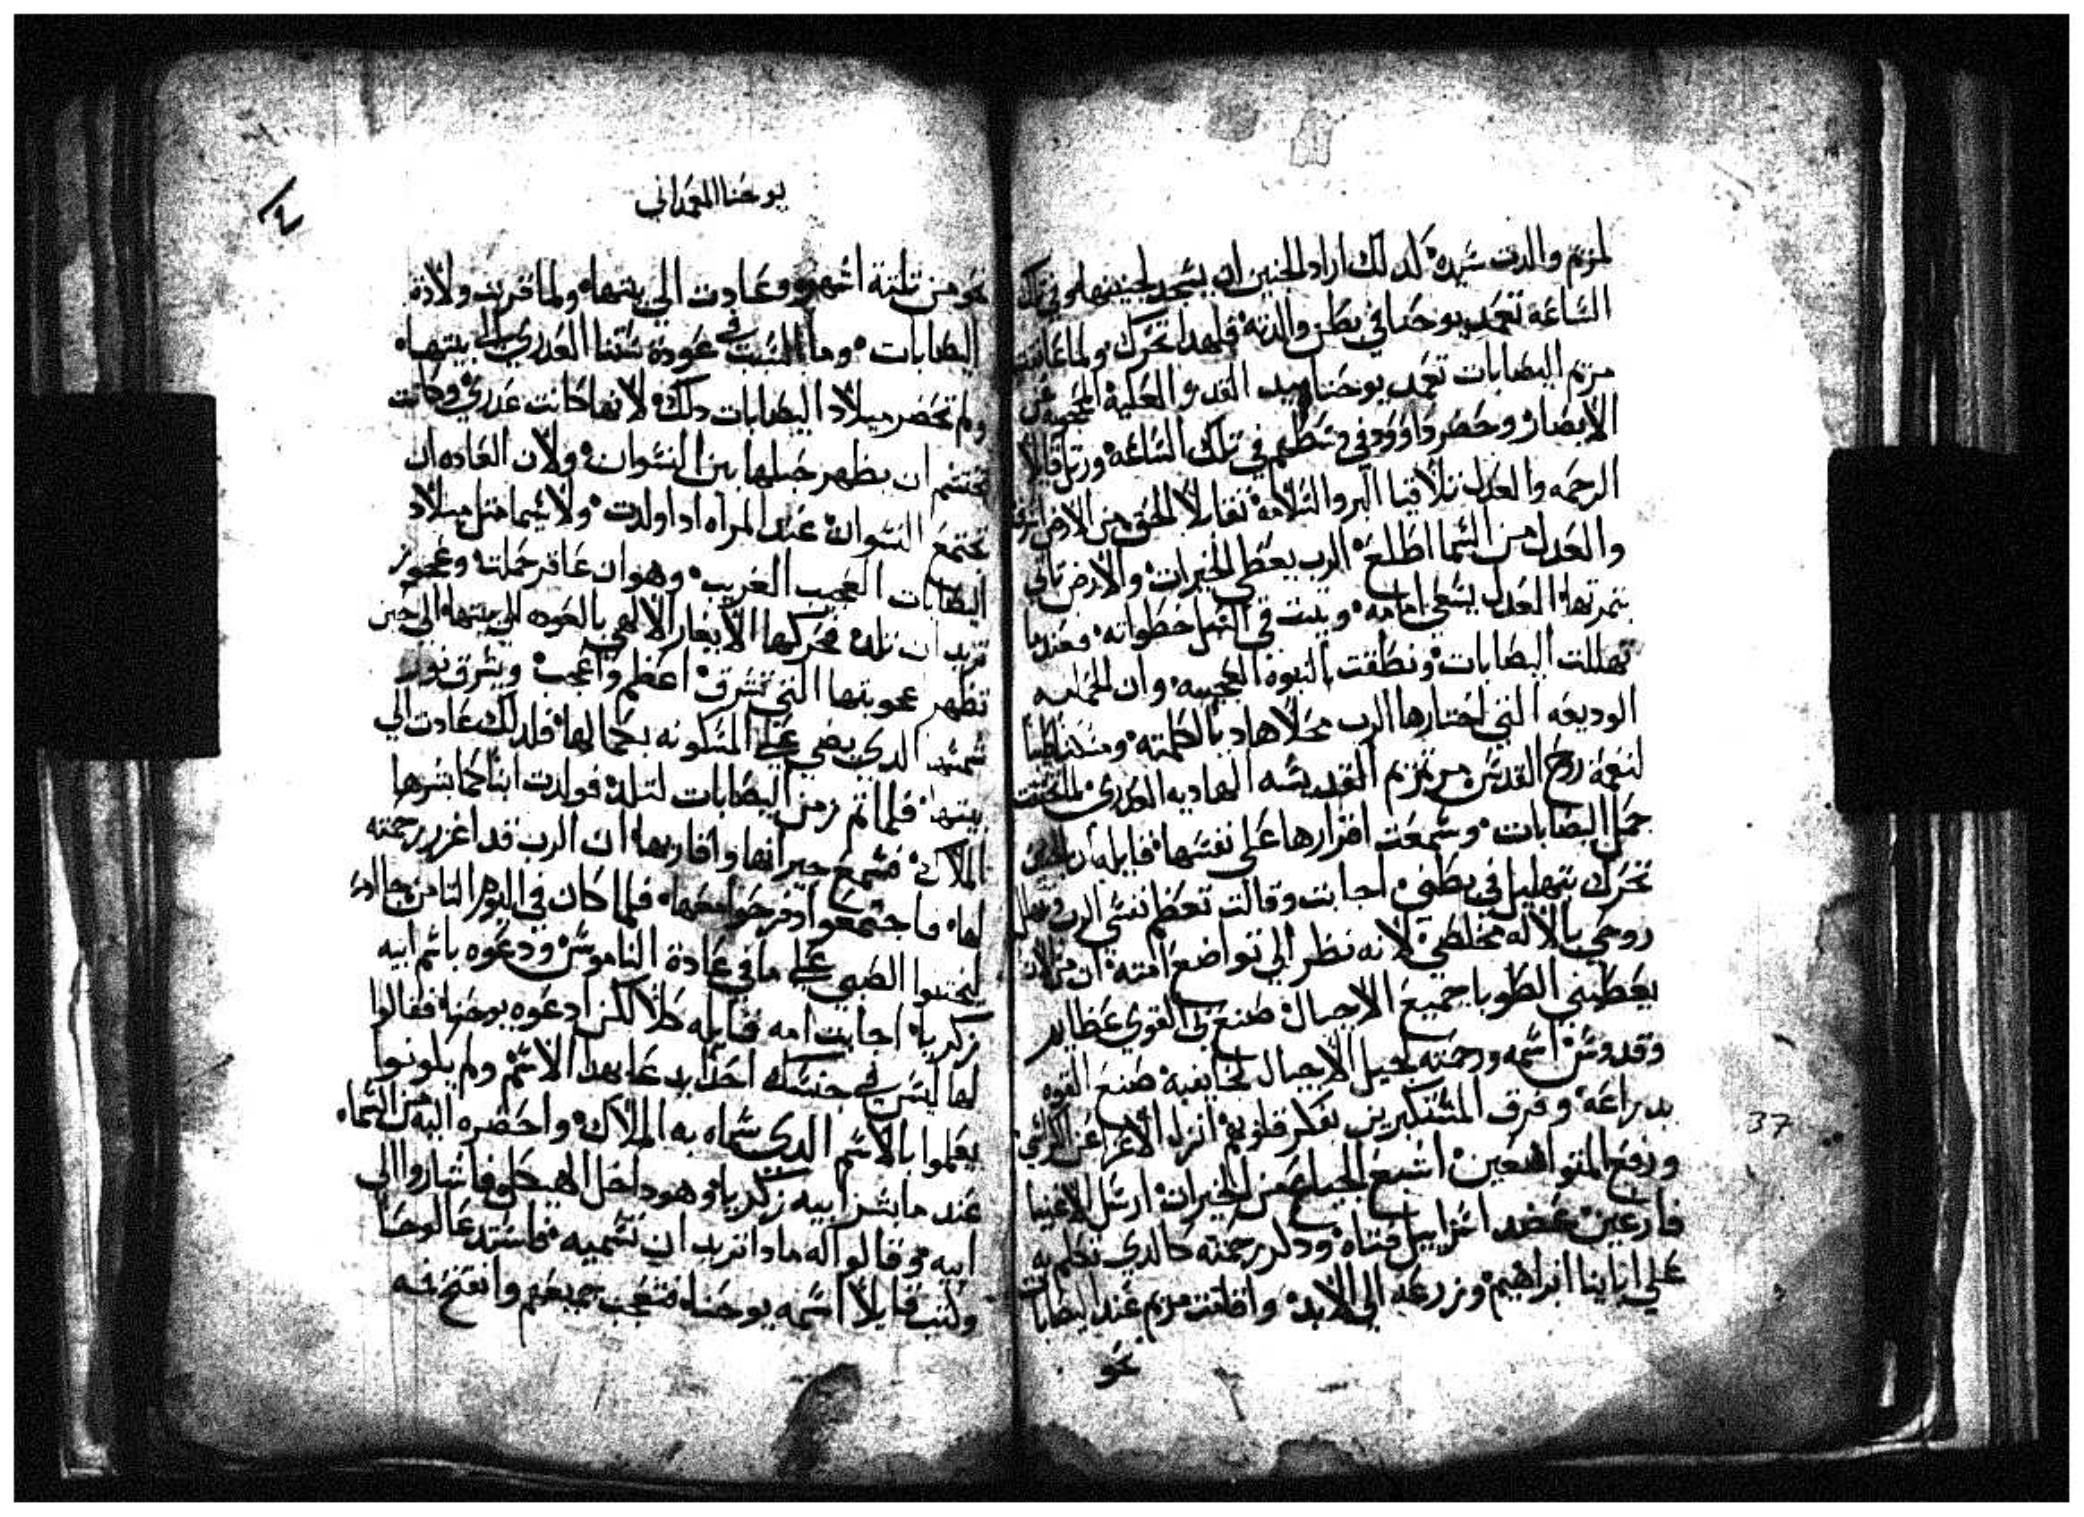 لمريم والدت سيده كدلك اراد الجنين ان يسجد لجنينها وفي تلك
الساعه تعمد يوحنا في بطن والدته فلهدا تحرك ولما عاينت
مريم اليصابات تعمد يوحنا بيد القدرة العليه المحجوبه عن
الابصار وحضر داوود في وسطهم في تلك الساعه ورتل قايلا
الرحمه والعدل تلاقيا البر والسلامه تقابلا الحق من الارض اشرق
والعدل من السما اطلع الرب يعطي الخيرات والارض تاتي
بتمرتها العدل يسعي امامه ويتبت في السبل خطواته فعندما
تهللت اليصابات ونطقت بالنبوه العجيبه وان الحمامه
الوديعه التي اختارها الرب محلا هاديا لكلمته ومسكنا
لنعمة روح القدس مريم القديسه الهاديه العدري لما تحققت
حمل اليصابات وسمعت اقرارها على نفسها قايله ان الجنين
تحرك بتهليل في بطني اجابت وقالت تعظم نفسي الرب وتهلل
روحي بالاله مخلصي لانه نظر الي تواضع امته ان من الان
يعطيني الطوبا جميع الاجيال صنع بي القوي عظايم
وقدوس اسمه ورحمته لجيل الاجيال لخايفيه صنع القوه
بدراعه وفرق المستكبرين بفكر قلوبهم انزل الاعزا عن الكراسي
ورفع المتواضعين اشبع الجياع من الخيرات ارسل الاغنيا
فارغين عضد اسراييل فتاه ودكر رحمته كالدي تكلم به
علي اباينا ابراهيم وزرعه الي الابد واقامت مريم عند اليصابات
نحو
37
يوحنا المعمداني
نحو من تلتة اشهر وعادت الي بيتها ولما قربت ولادة
اليصابات وما السبب في عودة ستنا العدري الي بيتها
ولم تحضر ميلاد اليصابات دلك لانها كانت عدري وكانت
تحتشم ان يظهر حبلها بين النسوان ولان العاده ان
تجتمع النسوان عند المراه ادا ولدت ولا سيما متل ميلاد
اليصابات العجيب الغريب وهو ان عاقر حملت وعجوز
تريد ان تلد فحركها الايعاز الالهي بالعوده الي بيتها الي حين
تظهر عجوبتها التي تشرق اعظم واعجب ويشرق نور
شمسها الدي يضي على المسكونه بكمالها فلدلك عادت الي
بيتها فلما تم زمن اليصابات لتلد فولدت ابنا كما بشرها
الملاك فسمع جيرانها واقاربها ان الرب قد اغزر رحمته
لها فاجتمعوا وفرحوا معها فلما كان في اليوم التامن جاا
ليختنوا الصبي على ما في عادة الناموس ودعوه باسم ابيه
زكريا اجابت امه قايله كلا لكن ادعوه يوحنا فقالوا
لها ليس في جنسك احدا يدعا بهدا الاسم ولم يكونوا
يعلموا بالاسم الدي سماه به الملاك واحضره اليه من السما
عند ما بشر ابيه زكريا وهو داخل الهيكل فاشاروا الي
ابيه وقالوا له مادا تريد ان تسميه فاستدعا لوحا
وكتب قايلا اسمه يوحنا فتعجب جميعهم وانفتح فمه